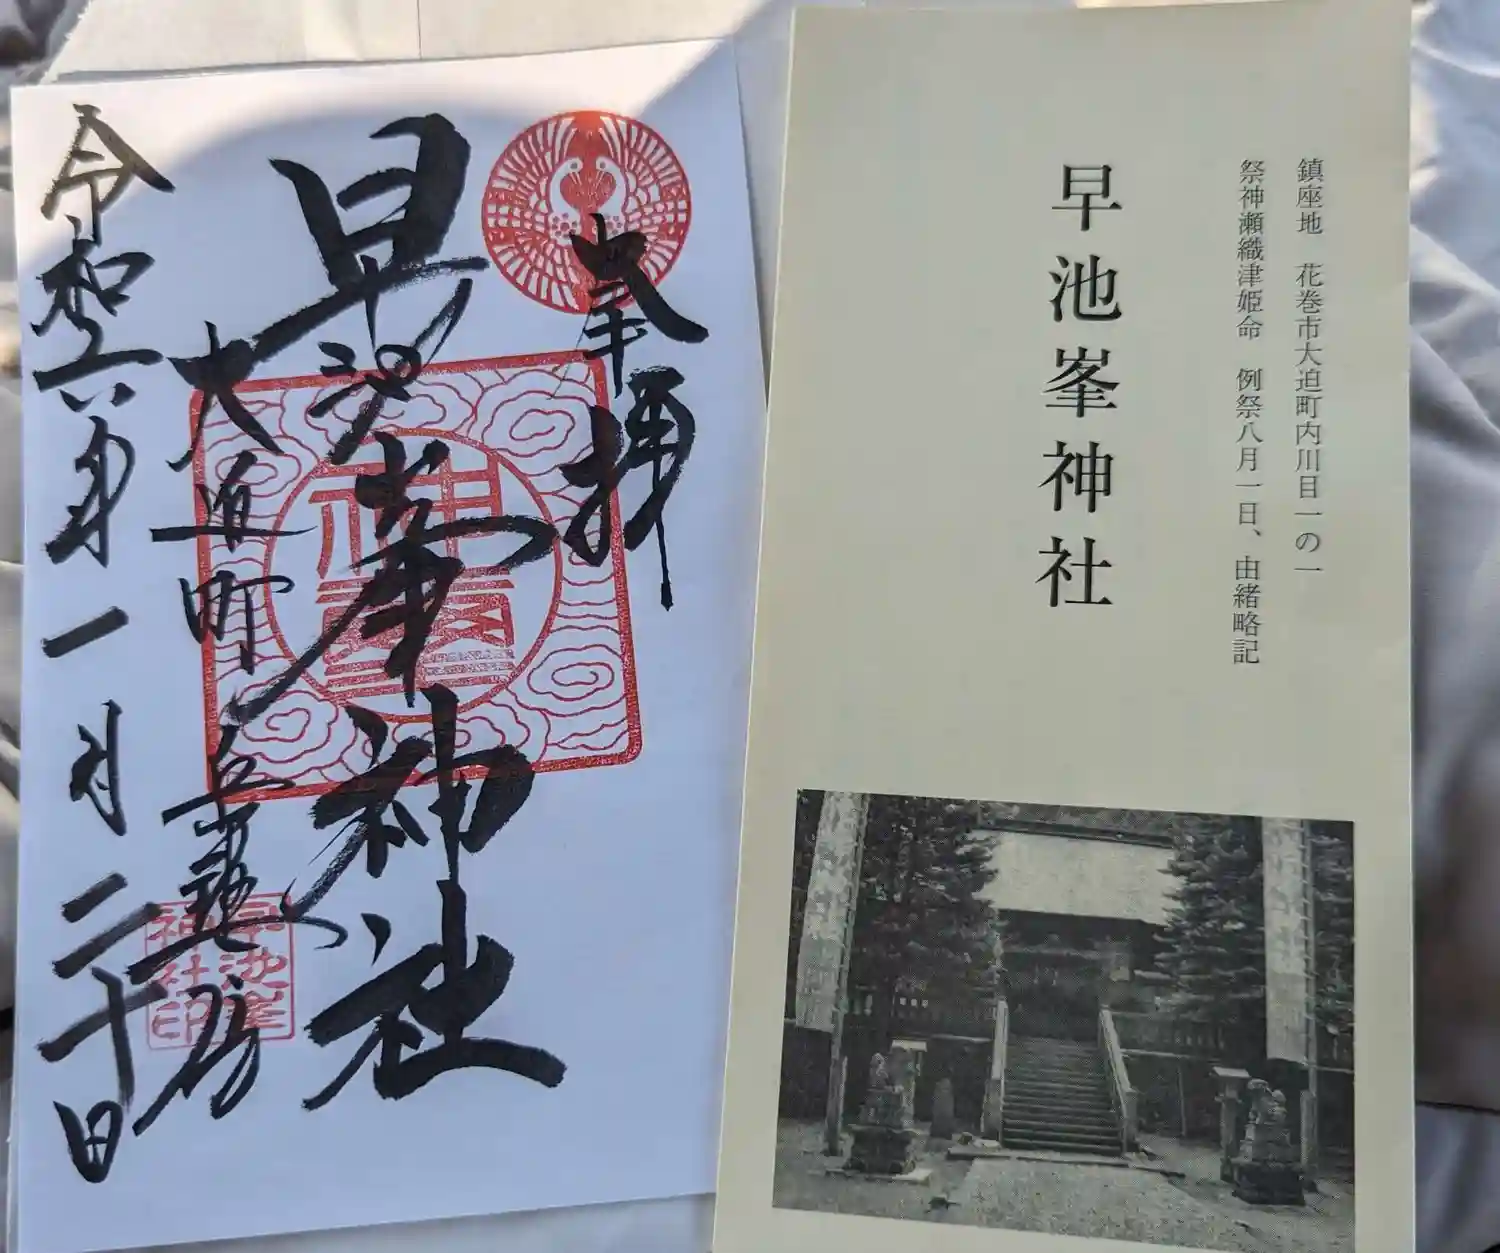 奉拝
早池峯神社
大迫町
令和六年一月二十日
早池峯神社印
鎮座地　花巻市大迫町内川目一の一
祭神瀬織津姫命　例祭八月一日、由緒略記
早池峯神社